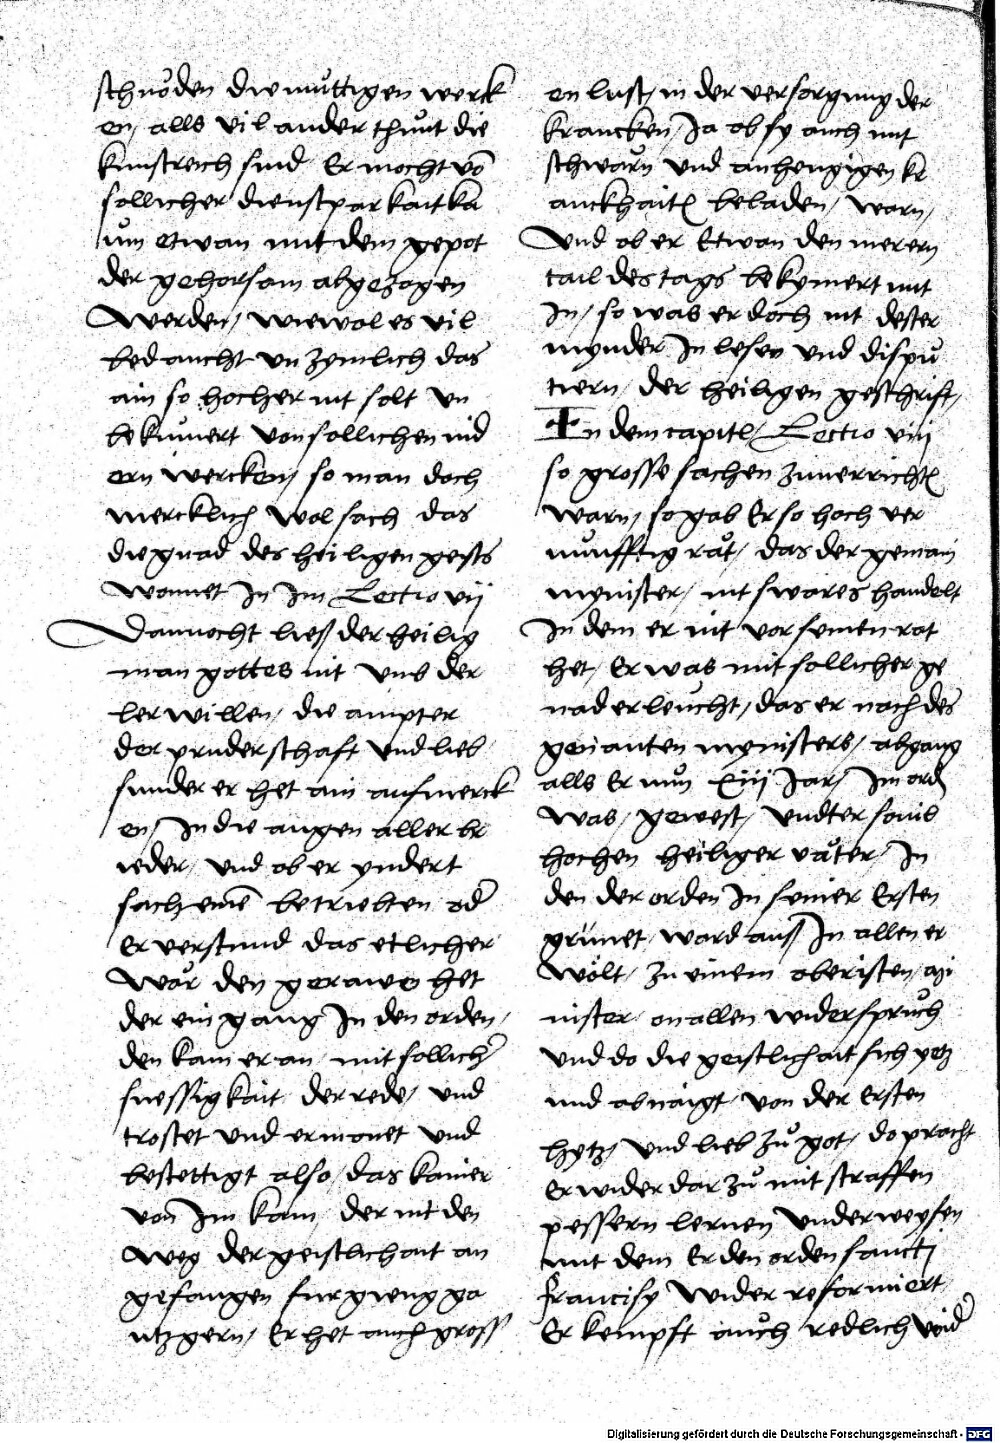 schnöden diemüttigen werck
en, alls vil ander thünt die
kunstreich sind Er mocht võ
sollicher dienstparkait ka
um etwan mit dem gepot
der gehorsam abgezogen
Werden, wiewol es vil
bedaucht vn zymlich das
ain so hocher nit solt vn
bekümert von sollichen nid
ern wercken, so man doch
mercklich wol sach das
die gnad des heiligen geists
wonnet In Im Lectio vij
Dannocht ließ der heilig
man gottes nit vmb der
ler willen, die ämpter
der pruderschaft vnd lieb
sunder er het ain aufmerck
en, In die augen aller br
ieder, vnd ob er yndert
sach einē betriebten od
Er verstund das etlicher
wär den gerawe het
der ein gang In den orden,
den kam er an mit sollich
suessigkait der rede, vnd
trostet vnd ermonet vnd
bestettigt also, das kainer
von Im kam, der nit den
weg der geistlichait an
gefangen fur gieng ga
ntz gern, Er het auch gross
en lust, in der versorgung der
krancken, Ja ob sy auch mit
schwärn vnd anhengigen kr
anckhait beladen, warn,
Vnd ob er Etwan den merern
tail des tags bekymert mit
In, so was er doch nit dester
mynder In lesen vnd dispu
tiern, der heiligen geschrift,
In dem capitl, Lectio viij
so grosse sachen zuuerricht
warn, so gab Er so hoch ver
nunfftig rät, das der gemain
mynister, nit swares handelt
In dem er nit vor seinen rat
het, Er was mit sollicher ge
nad erleucht, das er nach des
genanten mynisters, abgang
alls Er nun xiij Jar, Im ord
was, gewest, vndter souil
hochen heiliger väter, In
den der orden In seiner Ersten
grünet, ward auß In allen er
wölt, zu einem obristen, mi
nister, on allen widerspruch
vnd do die geistlichait sich yetz
und abnaigt, von der Ersten
hytz, vnd lieb zů got, do pracht
Er wider darzů mit straffen
pessern lernen Vnderweysen
mit dem Er den orden sancti
francisy wider reformiert
Er kempft auch redlich wid